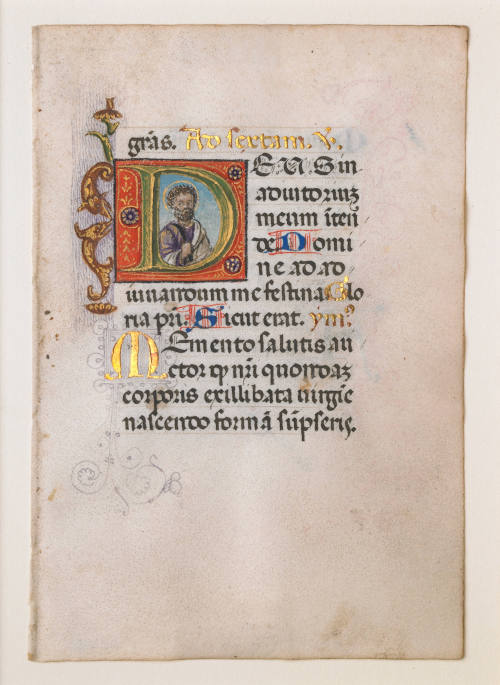 grãs. Ad sextam. V.
DEUS in
adiutorium
meum intẽ
de Domi
ne ad ad
iuuandum me festina Glo
ria pri. Sicut erat. ymꝰ
Memento salutis au
ctor qꝫ nr̃i quondaꝫ
corporis ex illibata uirgĩe
nascendo formã sũpseris.